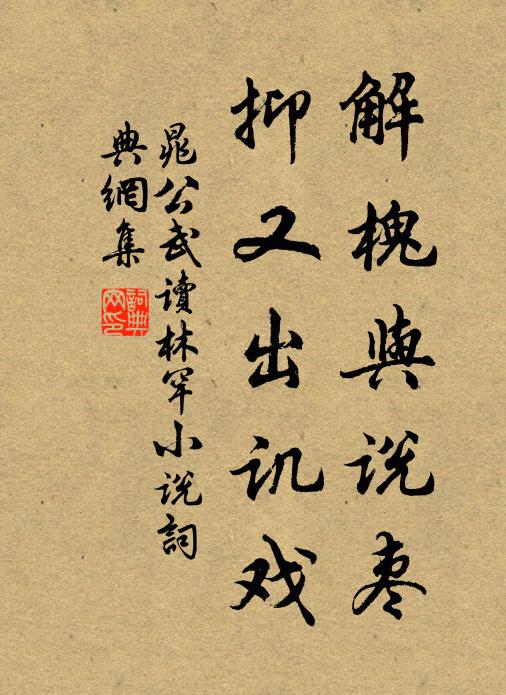 解槐與说枣
抑又出讥戏
晁公武读林罕小说詞
典網集
詞典网印